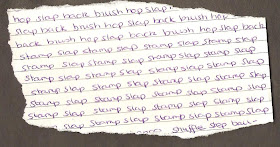 hop slap back brush hop slap
step back brush hop slap back brush hop
back brush hop slap back brush hop slap back
stamp slap stamp slap stamp slap stamp slap
stamp slap stamp slap stamp slap stamp slap
stamp slap stamp slap stamp slap stamp slap
stamp slap stamp slap stamp slap stamp slap
stamp slap stamp slap stamp slap stamp slap
stamp slap stamp slap stamp slap stamp slap
slap stamp slap stamp slap stamp slap
shuffle step ball